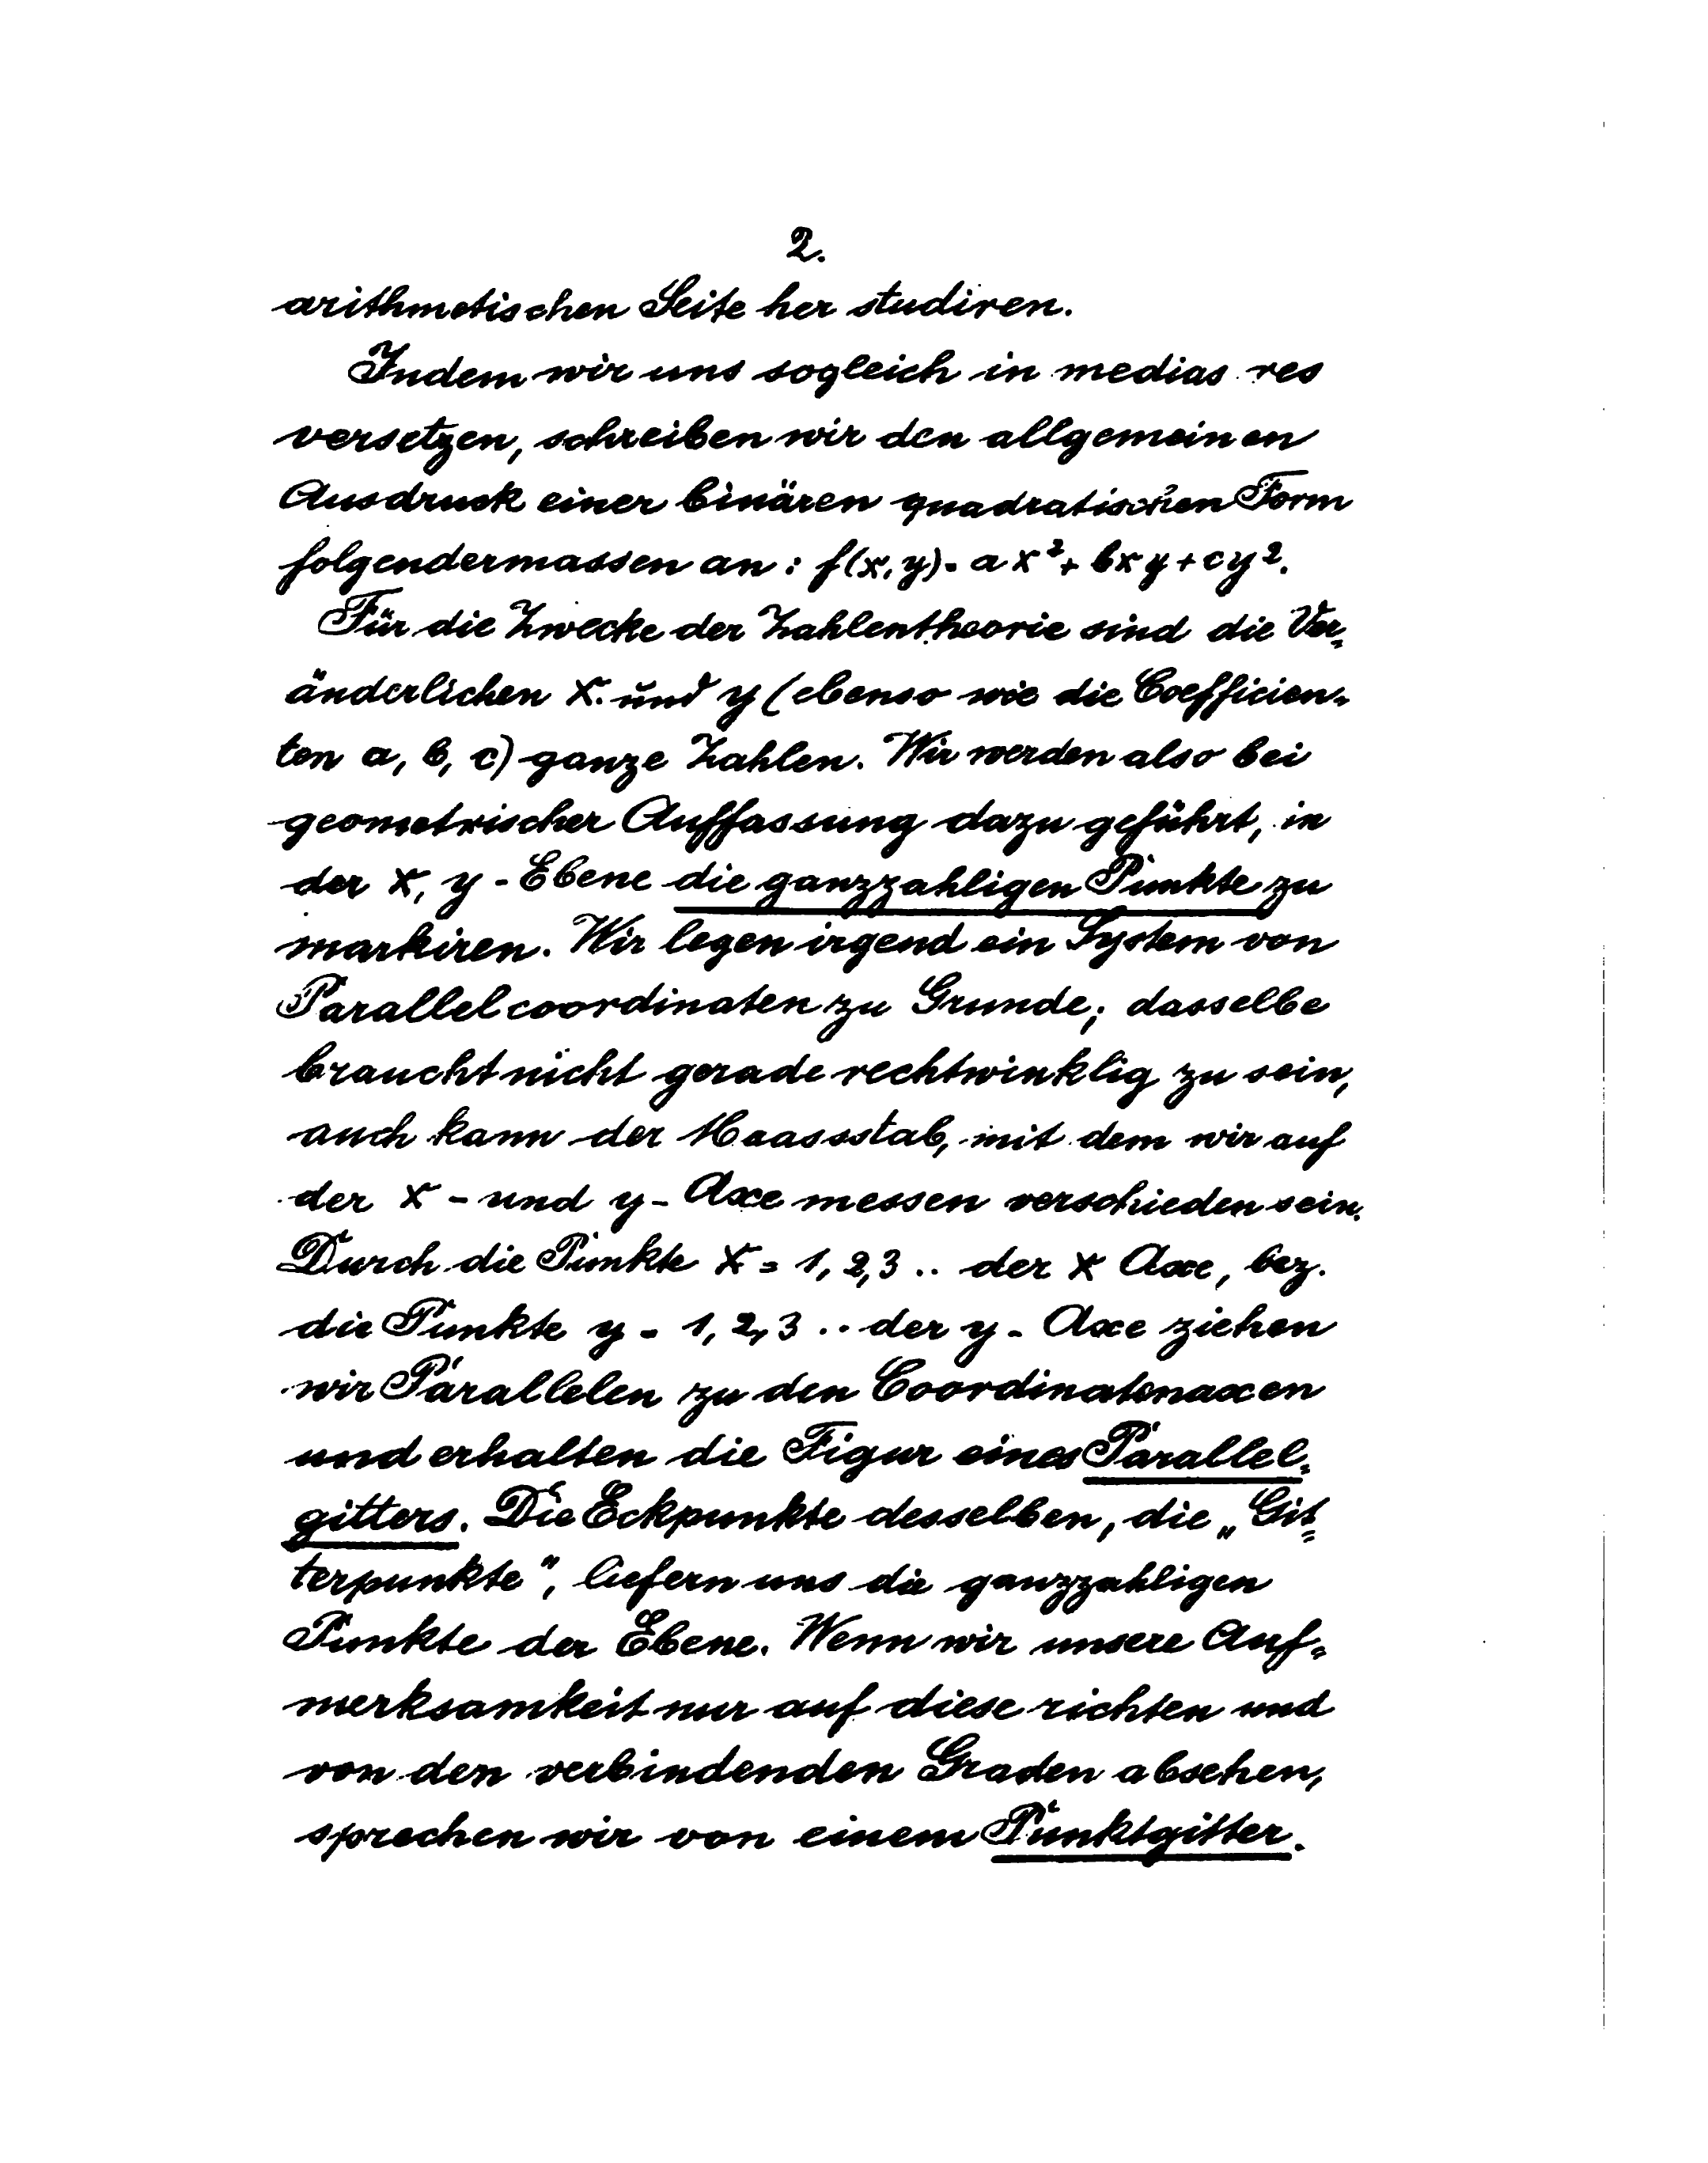 2.
arithmetischen Seite her studiren.
Indem wir uns sogleich in medias res
versetzen, schreiben wir den allgemeinen
Ausdruck einer binären quadratischen Form
folgendermassen an: f(x, y) = ax² + bxy + cy².
Für die Zwecke der Zahlentheorie sind die Ver=
änderlichen x und y (ebenso wie die Coefficien=
ten a, b, c) ganze Zahlen. Wir werden also bei
geometrischer Auffassung dazu geführt, in
der x, y - Ebene die ganzzahligen Punkte zu
markiren. Wir legen irgend ein System von
Parallelcoordinaten zu Grunde; dasselbe
braucht nicht gerade rechtwinklig zu sein,
auch kann der Maassstab, mit dem wir auf
der x - und y - Axe messen verschieden sein.
Durch die Punkte x = 1, 2, 3 .. der x Axe, bez.
die Punkte y = 1, 2, 3 .. der y - Axe ziehen
wir Parallelen zu den Coordinatenaxen
und erhalten die Figur eines Parallel=
gitters. Die Eckpunkte desselben, die „Git=
terpunkte", liefern uns die ganzzahligen
Punkte der Ebene. Wenn wir unsere Auf=
merksamkeit nur auf diese richten und
von den verbindenden Graden absehen,
sprechen wir von einem Punktgitter.